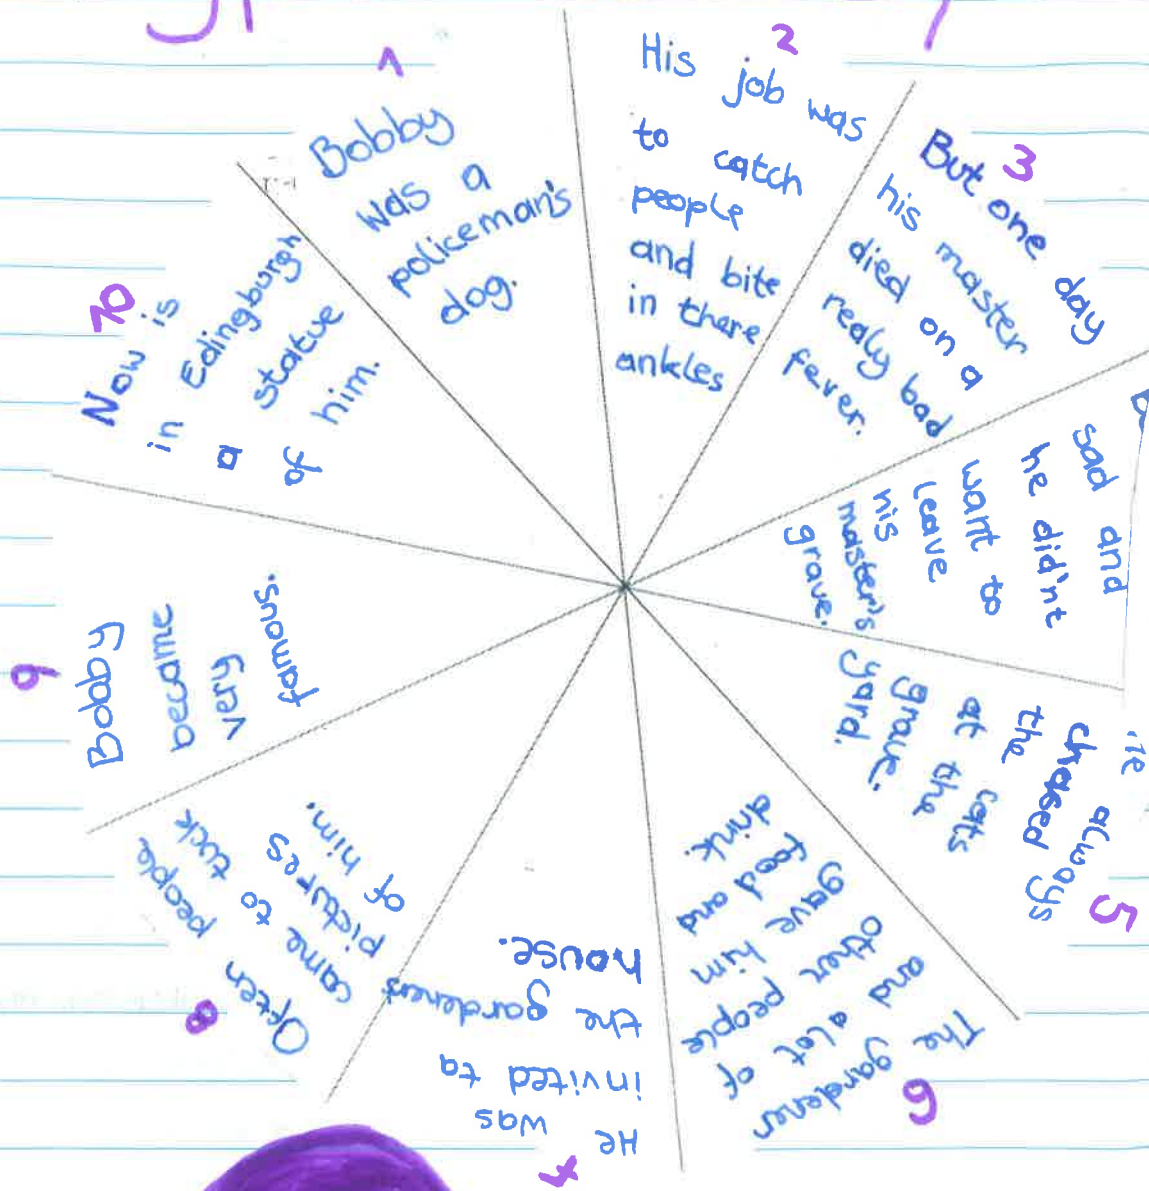 1
Bobby
was a
policeman's
dog.
2
His job was
to catch
people
and bite
in there
ankles
3
But one day
his master
died on a
realy bad
fever.
sad and
he didn't
want to
leave
his
master's
grave.
5
always
chased
the cats
at the
grave-
yard.
6
The gardener
and alot of
other people
gave him
food and
drink.
7
He was
invited to
the gardeners
house.
8
Often people
came to tuck
pictures
of him.
9
Bobby
became
very
famous.
10
Now is
in Edingburgh
a statue
of him.